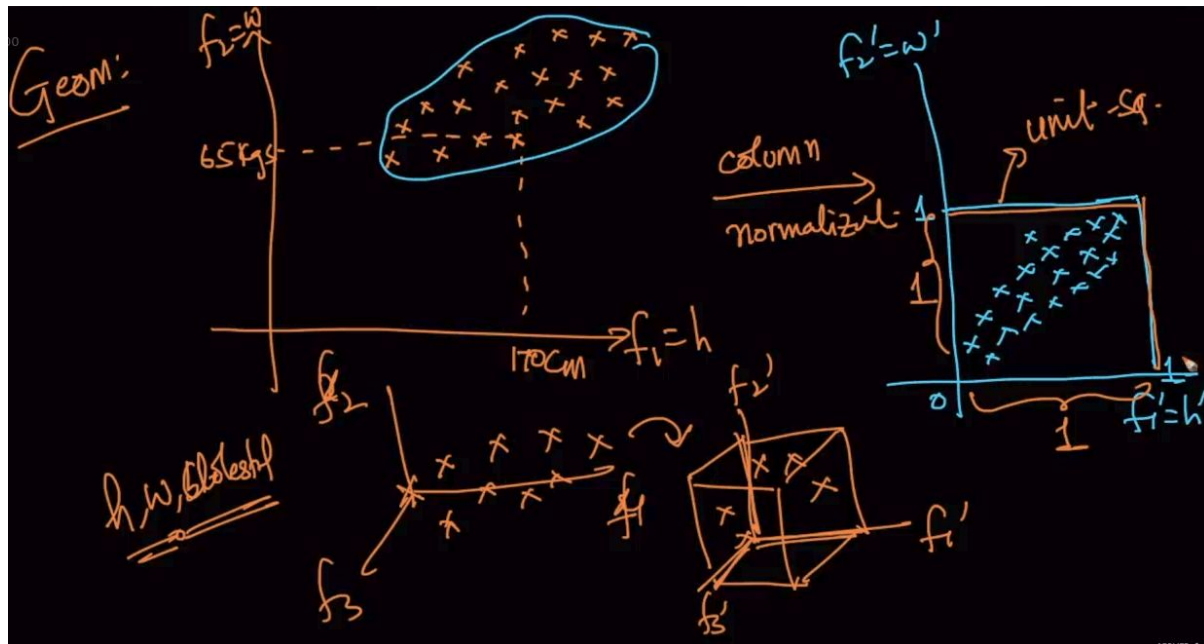 Geom:
f₂=w
65kgs
170cm
f₁=h
column
normalizat
f₂'=w'
unit-sq.
1
1
0
1
1
f₁'=h'
h, w,
f₂
f₁
f₃
f₂'
f₁'
f₃'